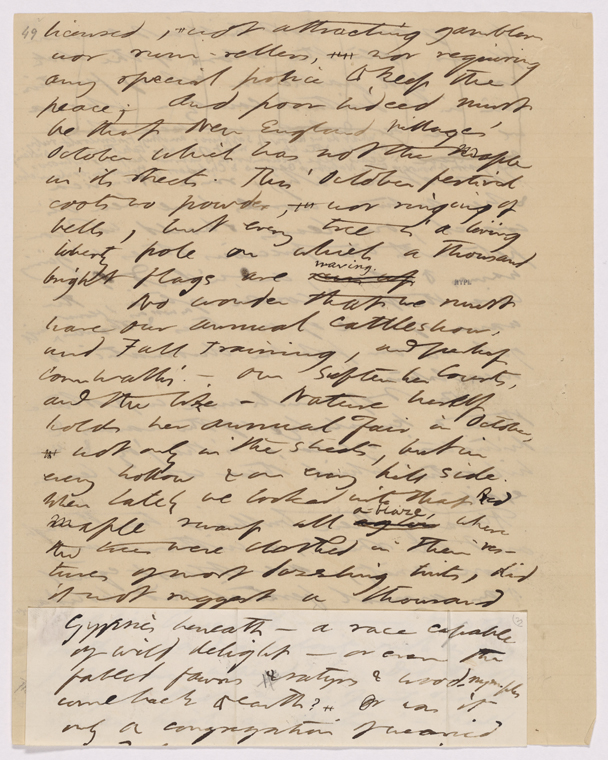 49 licensed, not attracting gamblers
nor rum-sellers, nor requiring
any special police to keep the
peace; And poor indeed must
be that New England village's
October which has not the Maple
in its streets. This October festival
costs no powder, nor ringing of
bells, but every tree is a living
liberty pole on which a thousand
waving.
bright flags are
No wonder that we must
have our annual Cattleshow,
and Fall Training, and perhaps
Cornwallis - our September Courts,
and the like - Nature herself
holds her annual fair in October,
not only in the streets, but in
every hollow & on every hill side.
When lately we looked into that Red
a-blaze,
Maple swamp all where
the trees were clothed in their ves-
tures of most dazzling tints, did
it not suggest a thousand
Gypsies beneath - a race capable
of wild delight - or even the
fabled fawns satyrs & wood-nymphs
come back to earth? Or was it
only a congregation of wearied